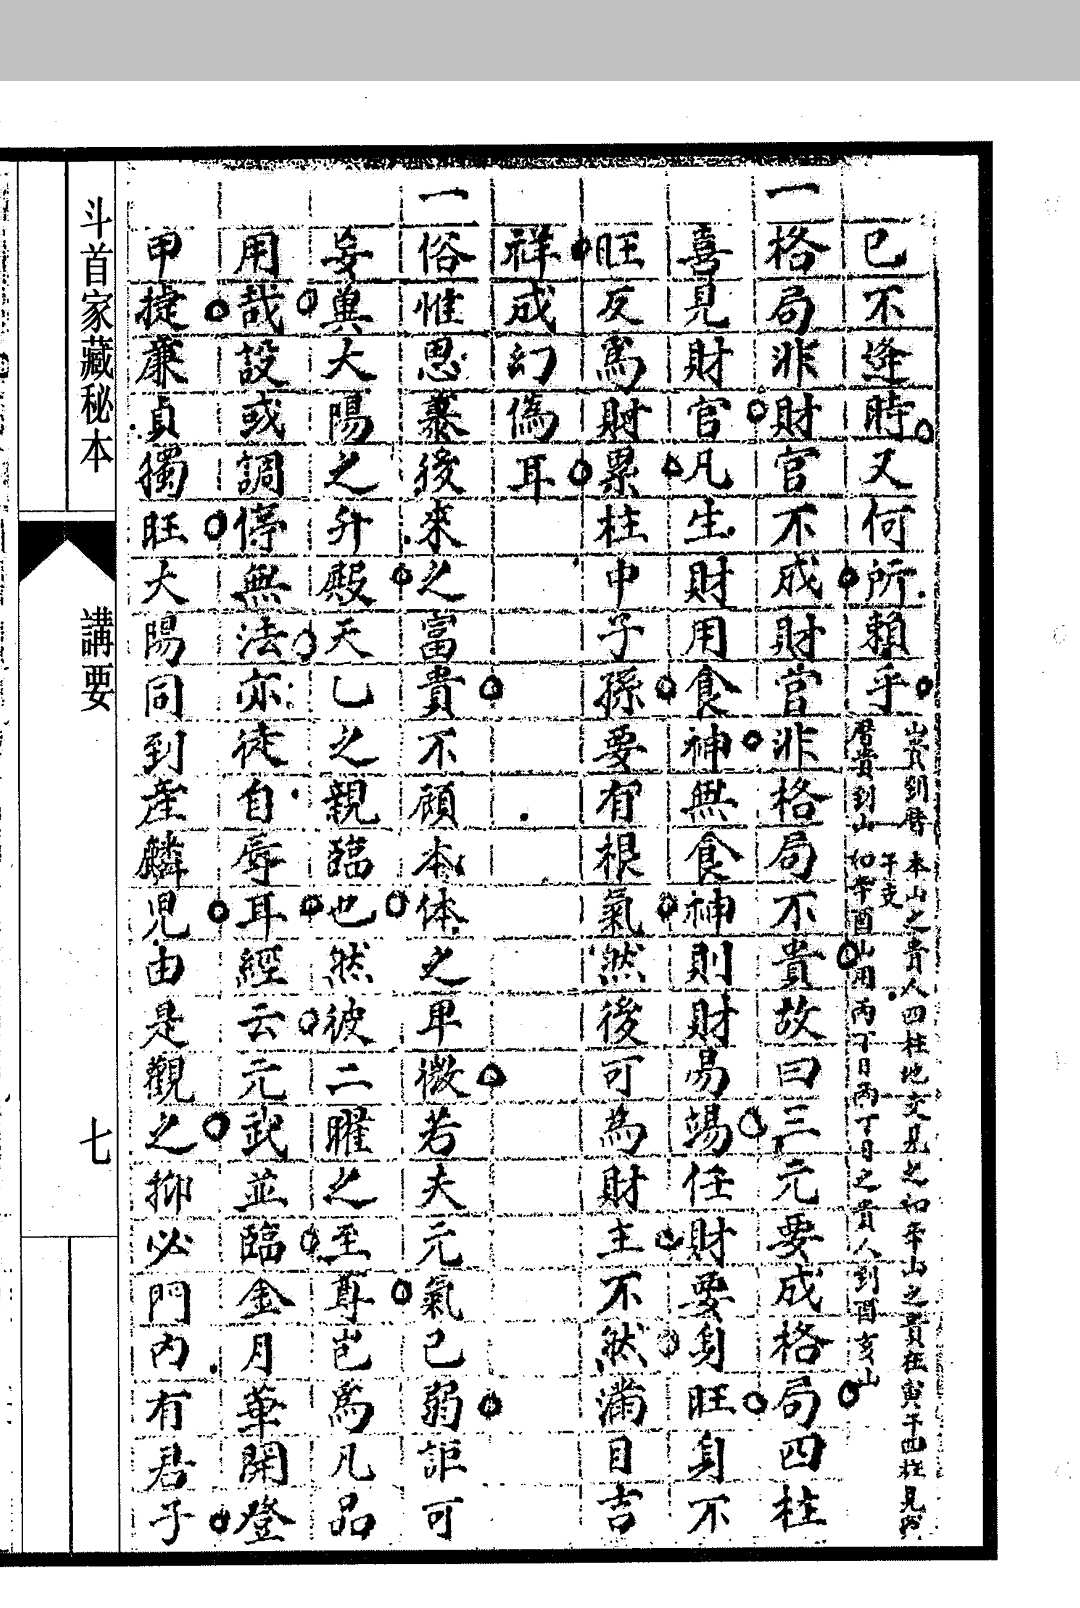 已不逢時又何所賴乎
山貴到曆
曆貴到山
本山之貴人四柱地支見之如辛山之貴在寅午四柱見
干支
如辛酉山用丙丁日丙丁月之貴人到酉亥山
一格局非財官不成財當非格局不貴故曰三元要成格局四柱
喜見財官凡生財用食神無食神則財易竭任財要身旺身不
旺反為財累柱中子孫要有根氣然後可為財主不然滿目吉
祥成幻偽耳
一俗惟思慕後來之富貴不顧本体之卑微若夫元氣已弱詎可
妄冀大陽之升殿天乙之親臨也然彼二曜之至尊豈為凡品
用哉設或調停無法亦徒自辱耳經云元武並臨金月華開登
甲捷廉貞獨旺大陽同到產麟兒由是觀之抑必門內有君子
斗首家藏秘本
講要
七